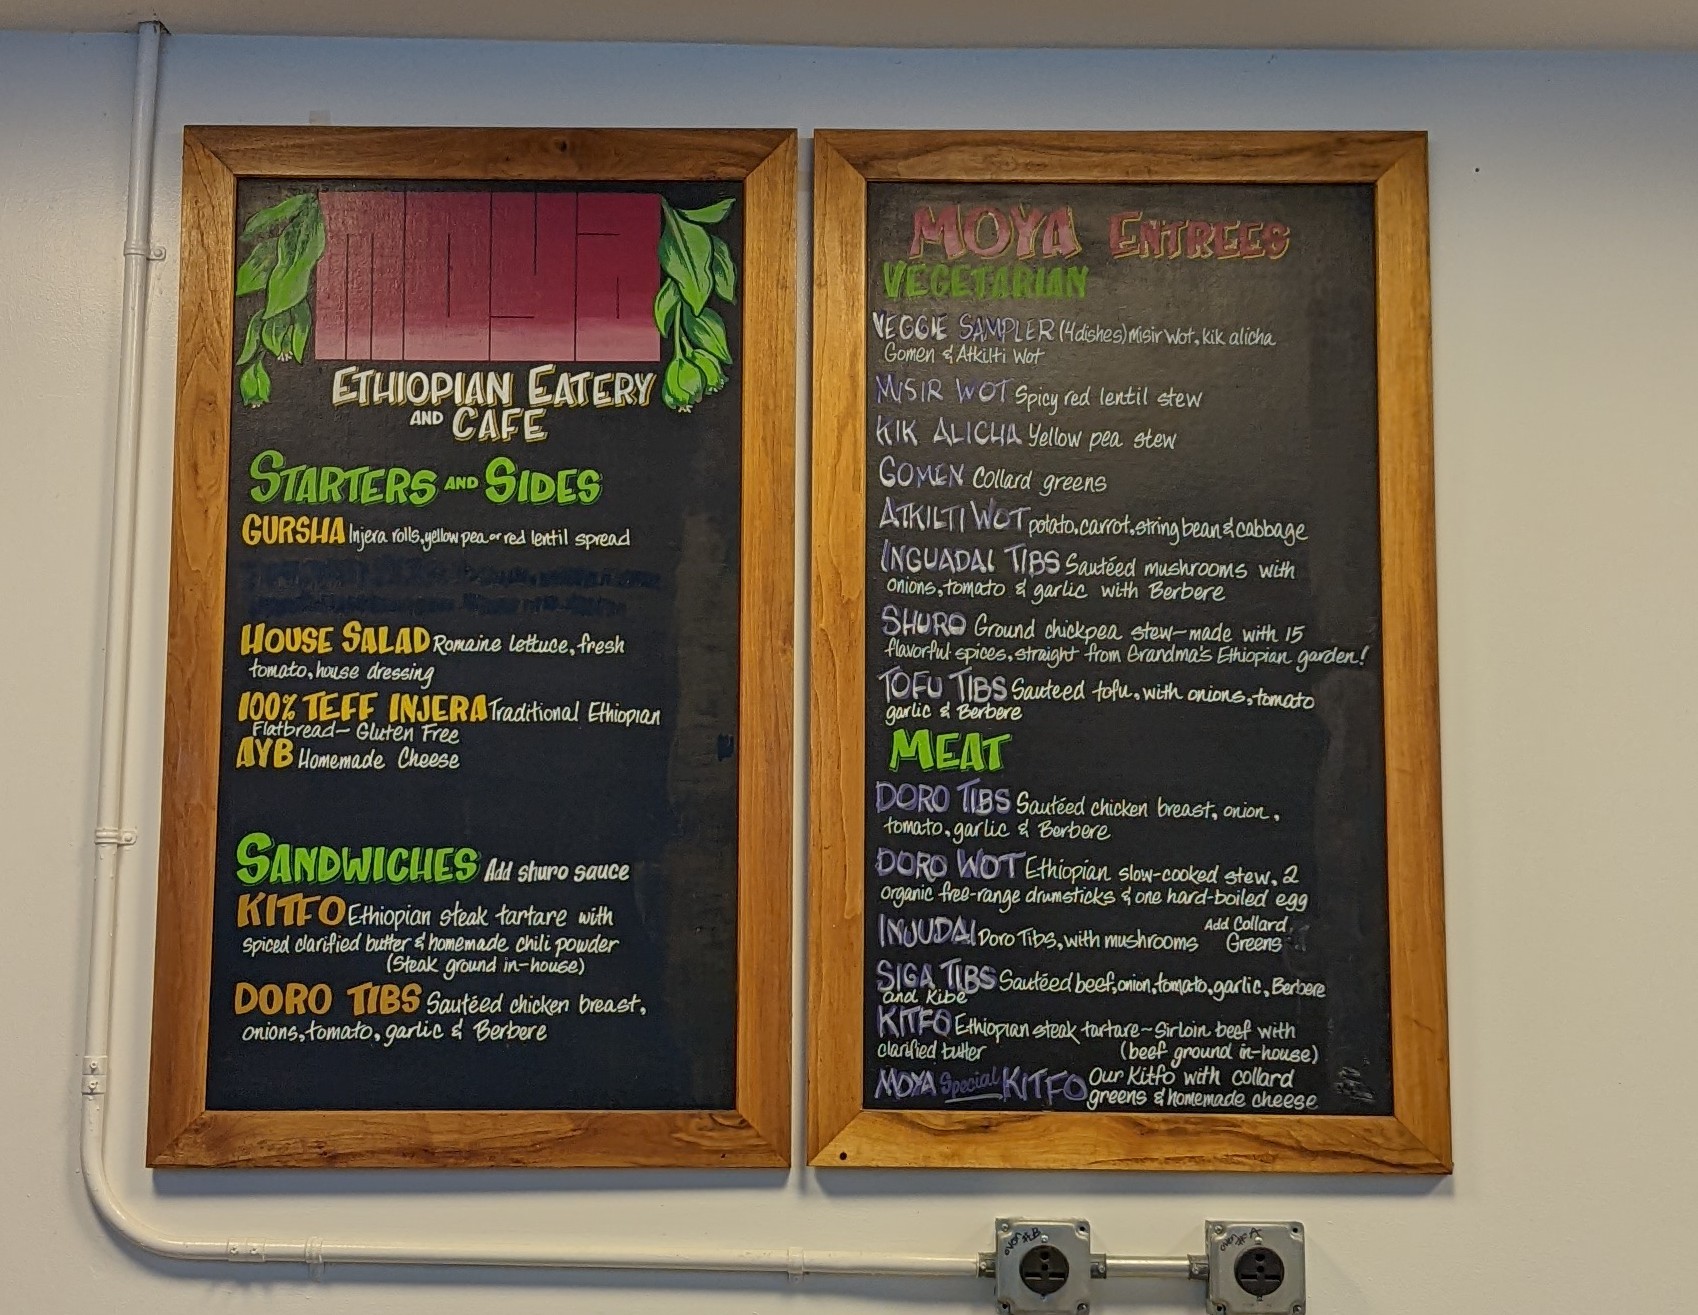 MOYA
ETHIOPIAN EATERY
AND CAFE
STARTERS AND SIDES
GURSHA Injera rolls, yellow pea or red lentil spread
HOUSE SALAD Romaine lettuce, fresh
tomato, house dressing
100% TEFF INJERA Traditional Ethiopian
Flatbread— Gluten Free
AYB Homemade Cheese
SANDWICHES Add shuro sauce
KITFO Ethiopian steak tartare with
spiced clarified butter & homemade chili powder
(Steak ground in-house)
DORO TIBS Sautéed chicken breast,
onions, tomato, garlic & Berbere
MOYA ENTREES
VEGETARIAN
VEGGIE SAMPLER (4 dishes) misir wot, kik alicha
Gomen & Atkilti Wot
MISIR WOT Spicy red lentil stew
KIK ALICHA Yellow pea stew
GOMEN Collard greens
ATKILTI WOT potato, carrot, string bean & cabbage
INGUADAI TIBS Sautéed mushrooms with
onions, tomato & garlic with Berbere
SHURO Ground chickpea stew—made with 15
flavorful spices, straight from Grandma's Ethiopian garden!
TOFU TIBS Sauteed tofu, with onions, tomato
garlic & Berbere
MEAT
DORO TIBS Sautéed chicken breast, onion,
tomato, garlic & Berbere
DORO WOT Ethiopian slow-cooked stew, 2
organic free-range drumsticks & one hard-boiled egg
INJUDAI Doro Tibs, with mushrooms Add Collard
Greens
SIGA TIBS Sautéed beef, onion, tomato, garlic, Berbere
and Kibe
KITFO Ethiopian steak tartare~Sirloin beef with
clarified butter (beef ground in-house)
MOYA Special KITFO Our Kitfo with collard
greens & homemade cheese